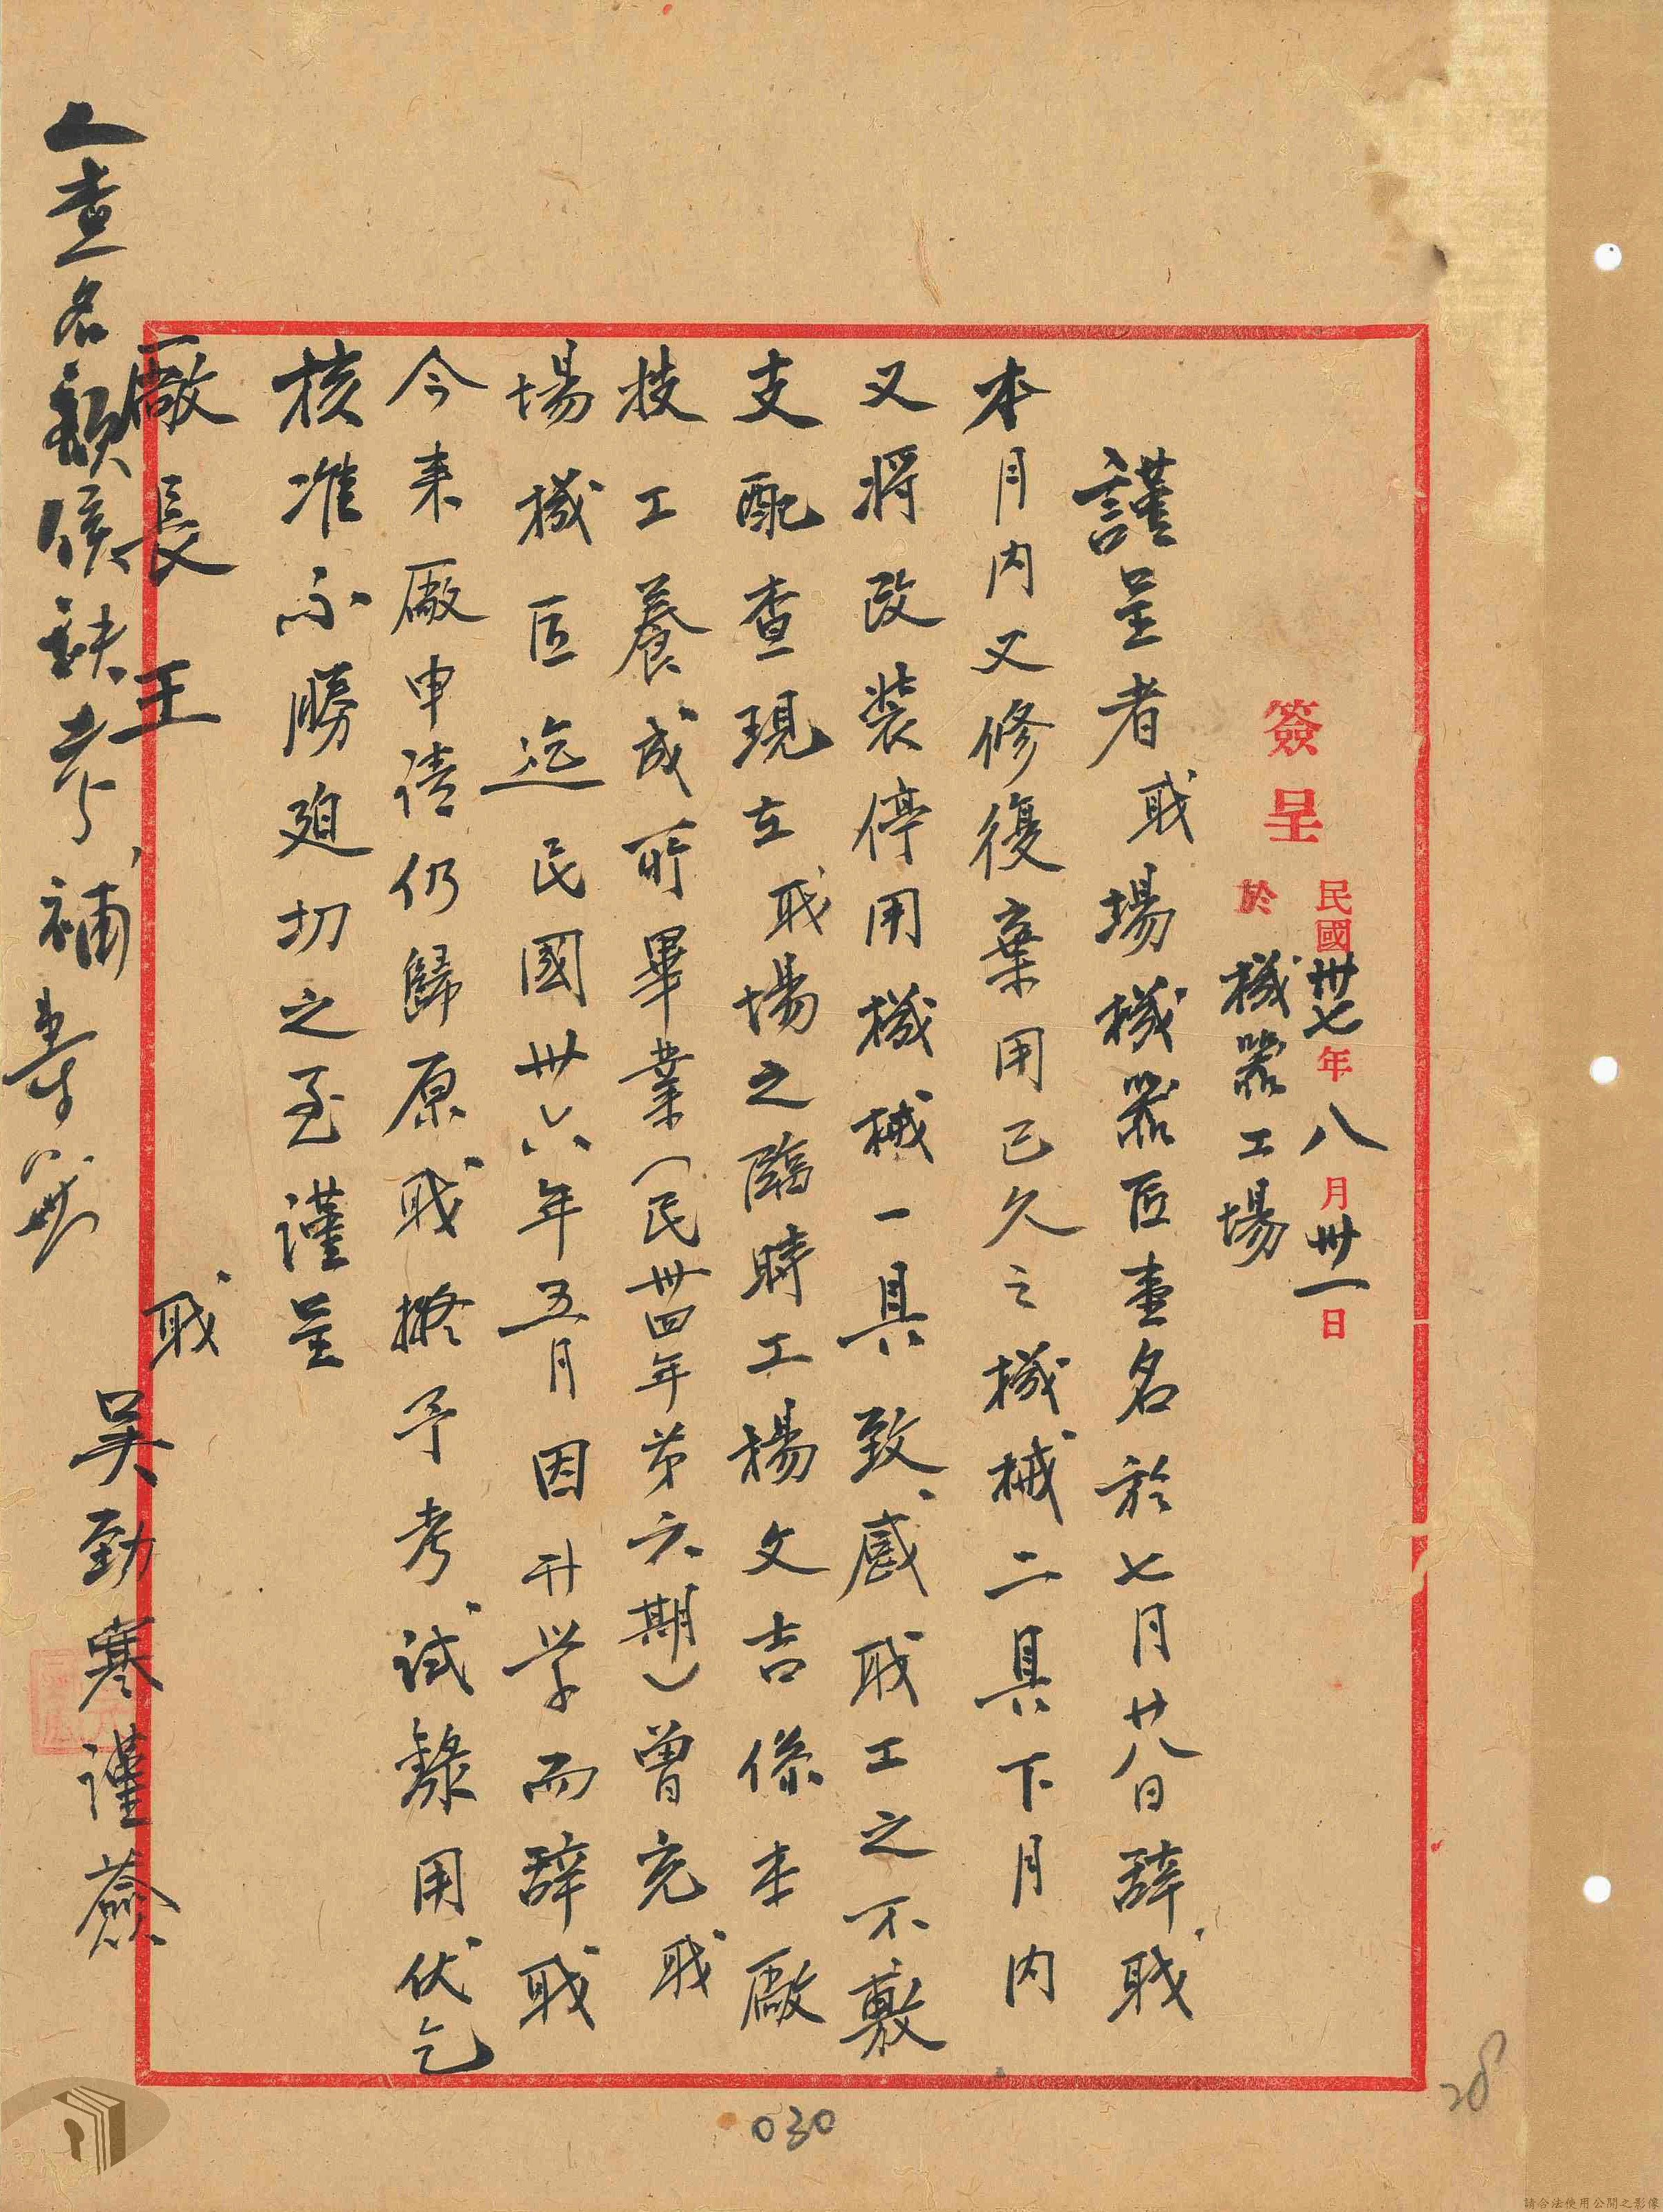 簽呈 民國卅七年八月卅一日
於機器工場
謹呈者职場機器匠壹名於七月廿八日辞职
本月內又修復棄用已久之機械二具下月内
又將改装停用機械一具致感职工之不敷
支配查現在职場之臨時工楊文吉係本廠
技工養成所畢業(民卅四年第六期)曾充职
場機匠迄民國卅六年五月因升学而辞职
今来廠申請仍歸原职擬予考試錄用伏乞
核准不勝廹切之至謹呈
廠長 王
职 吴勁寒謹簽
查名額俟缺考補
030
28
請合法使用公開之影像